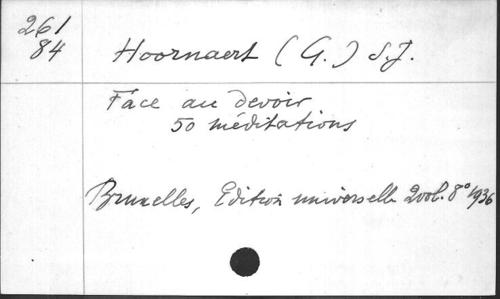 261
84
Hoornaert (G.) S.J.
Face au devoir
50 méditations
Bruxelles, Edition universelle 2 vol. 8° 1936